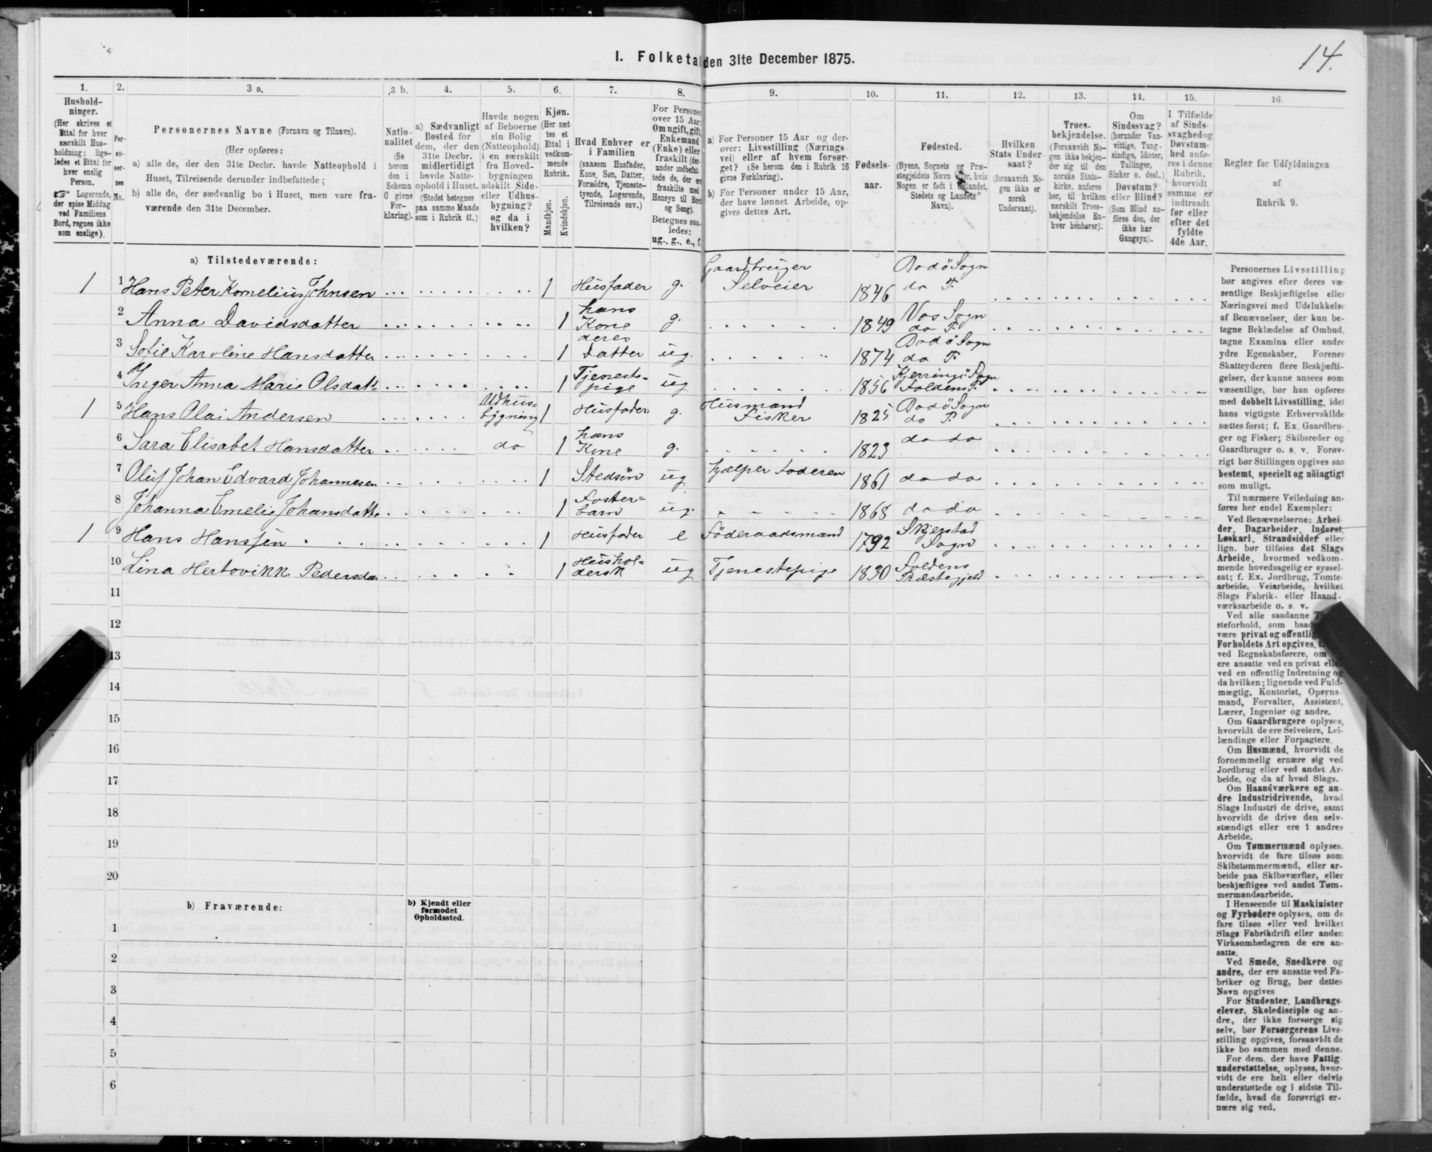 14.
I. Folketa den 31te December 1875.
1. 2. 3 a. 3 b. 4. 5. 6. 7. 8. 9. 10. 11. 12. 13. 14. 15. 16.
Hushold-
ninger.
(Her skrives et
Ettal for hver
særskilt Hus-
holdning; lige-
ledes et Ettal for
hver enslig
Person.
Logerende,
der spise Middag
ved Familiens
Bord, regnes ikke
som enslige).
Per-
so-
ner-
nes
No.
Personernes Navne (Fornavn og Tilnavn).
(Her opføres:
a) alle de, der den 31te Decbr. havde Natteophold i
Huset, Tilreisende derunder indbefattede;
b) alle de, der sædvanlig bo i Huset, men vare fra-
værende den 31te December.
Natio-
nalitet
(Se
herom
den i
Schema
O givne
For-
klaring).
a) Sædvanligt
Bosted for
dem, der den
31te Decbr.
midlertidigt
havde Natte-
ophold i Huset.
(Stedet betegnes
paa samme Maade
som i Rubrik 11.)
Havde nogen
af Beboerne
sin Bolig
(Natteophold)
i en særskilt
fra Hoved-
bygningen
adskilt Side-
eller Udhus-
bygning?
og da i
hvilken?
Kjøn.
(Her sæt-
tes et
Ettal i
vedkom-
mende
Rubrik.
Mandkjøn.
Kvindekjøn.
Hvad Enhver er
i Familien
(saasom Husfader,
Kone, Søn, Datter,
Forældre, Tjeneste-
tyende, Logerende,
Tilreisende osv.)
For Persone
over 15 Aar:
Om ugift, gift,
Enkemand
(Enke) eller
fraskilt
ug., g., e., f.
a) For Personer 15 Aar og der-
over: Livsstilling (Nærings-
vei) eller af hvem forsør-
get? (Se herom den i Rubrik 16
givne Forklaring).
b) For Personer under 15 Aar,
der have lønnet Arbeide, op-
gives dettes Art.
Fødsels-
aar.
Fødested.
(Byens, Sognets og Præ-
stegjeldets Navn
Nogen er født i Udlandet,
Stedets og Landets
Navn).
Hvilken
Stats Under-
saat?
(forsaavidt No-
gen ikke er
norsk
Undersaat).
Troes-
bekjendelse.
(Forsaavidt No-
gen ikke bekjen-
der sig til den
norske Stats-
kirke, anføres
her, til hvilken
særskilt Troes-
bekjendelse En-
hver henhører).
Om
Sindssvag?
(herunder Van-
vittige, Tung-
sindige, Idioter,
Tullinger,
Sinker o. desl.)
Døvstum?
eller Blind?
(Som Blind an-
føres den, der
ikke har
Gangsyn).
I Tilfælde
af Sinds-
svaghed og
Døvstum-
hed anfø-
res i denne
Rubrik,
hvorvidt
samme er
indtraadt
før eller
efter det
fyldte
4de Aar.
Regler for Udfyldningen
af
Rubrik 9.
a) Tilstedeværende:
1 1 Hans Peter Kornelius Johnsen 1 Husfader g. Gaardbruger Selveier 1846 Bodø Sogn do P.
2 Anna Davidsdatter 1 hans Kone g. 1849 Vos Sogn do P.
3 Sofie Karoline Hansdatter 1 deres Datter ug. 1874 Bodø Sogn do P.
4 Inger Anna Marie Olsdatt 1 Tjeneste-pige ug 1856 Kjerringø Sogn Foldens P.
1 5 Hans Olai Andersen Udhus-bygning 1 Husfader g. Husmand Fisker 1825 Bodø Sogn do P.
6 Sara Elisabet Hansdatter do 1 hans Kone g. 1823 do do
7 Oluf Johan Edvard Johannesen 1 Stedsøn ug Hjælper Faderen 1861 do do
8 Johanna Emelie Johansdatt 1 Foster-barn ug. 1868 do do
1 9 Hans Hanssen 1 Husfader e Føderaadsmand 1792 Skjerstad Sogn
10 Lina Hertovikk Pedersda 1 Hushol-dersk ug Tjenestepige 1830 Foldens Præstegjeld
11
12
13
14
15
16
17
18
19
20
b) Fraværende:
b) Kjendt eller
formodet
Opholdssted.
1
2
3
4
5
6
Personernes Livsstilling
bør angives efter deres væ-
sentlige Beskjæftigelse eller
Næringsvei med Udelukkelse
af Benævnelser, der kun be-
tegne Beklædelse af Ombud,
tagne Examina eller andre
ydre Egenskaber. Forener
Skatteyderen flere Beskjæfti-
gelser, der kunne ansees som
væsentlige, bør han opføres
med dobbelt Livsstilling, idet
hans vigtigste Erhvervskilde
sættes først; f. Ex. Gaardbru-
ger og Fisker; Skibsreder og
Gaardbruger o. s. v. Forøv-
rigt bør Stillingen opgives saa
bestemt, specielt og nøiagtigt
som muligt.
Til nærmere Veiledning an-
føres her endel Exempler:
Ved Benævnelserne: Arbei-
der, Dagarbeider, Inderst,
Løskarl, Strandsidder eller
lign. bør tilføies det Slags
Arbeide, hvormed vedkom-
mende hovedsagelig er syssel-
sat; f. Ex. Jordbrug, Tomte-
arbeide, Veiarbeide, hvilket
Slags Fabrik- eller Haand-
værksarbeide o. s. v.
Ved alle saadanne
steforhold, som baa
være privat og offentlig,
Forholdets Art opgives,
ved Regnskabsførere, om
ere ansatte ved en privat elle
ved en offentlig Indretning og
da hvilken; lignende ved Fuld-
mægtig, Kontorist, Opsyns-
mand, Forvalter, Assistent,
Lærer, Ingeniør og andre.
Om Gaardbrugere oplyses,
hvorvidt de ere Selveiere, Lei-
lændinge eller Forpagtere.
Om Husmænd, hvorvidt de
fornemmelig ernære sig ved
Jordbrug eller ved andet Ar-
beide, og da af hvad Slags.
Om Haandværkere og an-
dre Industridrivende, hvad
Slags Industri de drive, samt
hvorvidt de drive den selv-
stændigt eller ere i andres
Arbeide.
Om Tømmermænd oplyses,
hvorvidt de fare tilsøs som
Skibstømmermænd, eller ar-
beide paa Skibsværfter, eller
beskjæftiges ved andet Tøm-
mermandsarbeide.
I Henseende til Maskinister
og Fyrbødere oplyses, om de
fare tilsøs eller ved hvilket
Slags Fabrikdrift eller anden
Virksomhedsgren de ere an-
satte.
Ved Smede, Snedkere og
andre, der ere ansatte ved Fa-
briker og Brug, bør dettes
Navn opgives
For Studenter, Landbrugs-
elever, Skoledisciple og an-
dre, der ikke forsørge sig
selv, bør Forsørgerens Livs-
stilling opgives, forsaavidt de
ikke bo sammen med denne.
For dem, der have Fattig-
understøttelse, oplyses, hvor-
vidt de ere helt eller delvis
understøttede og i sidste Til-
fælde, hvad de forøvrigt er-
nære sig ved.